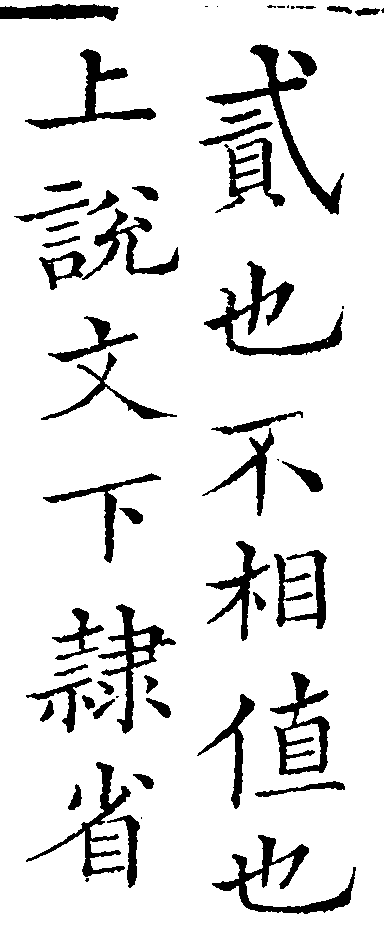 貳也不相值也
上說文下隸省